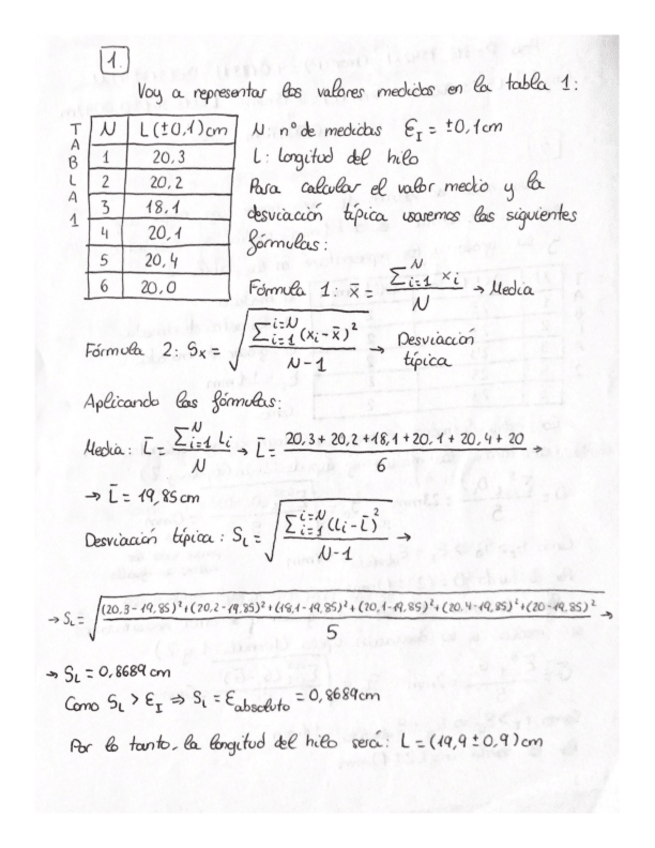 1.
Voy a representar los valores medidos en la tabla 1:
TABLA 1
N L(±0,1)cm
1 20,3
2 20,2
3 18,1
4 20,1
5 20,4
6 20,0
N: nº de medidas Ɛ_I = ±0,1cm
L: Longitud del hilo
Para calcular el valor medio y la
desviación típica usaremos las siguientes
fórmulas:
Fórmula 1: x̄ = ∑_{i=1}^{N} x_i / N → Media
Fórmula 2: S_x = √(∑_{i=1}^{i=N} (x_i - x̄)² / N-1) → Desviación típica
Aplicando las fórmulas:
Media: L̄ = ∑_{i=1}^{N} L_i / N → L̄ = 20,3 + 20,2 + 18,1 + 20,1 + 20,4 + 20 / 6 →
→ L̄ = 19,85cm
Desviación típica: S_L = √(∑_{i=1}^{i=N} (L_i - L̄)² / N-1) →
→ S_L = √((20,3-19,85)²+(20,2-19,85)²+(18,1-19,85)²+(20,1-19,85)²+(20,4-19,85)²+(20-19,85)² / 5) →
→ S_L = 0,8689cm
Como S_L > Ɛ_I ⇒ S_L = Ɛ_absoluto = 0,8689cm
Por lo tanto, la longitud del hilo será: L = (19,9 ± 0,9) cm